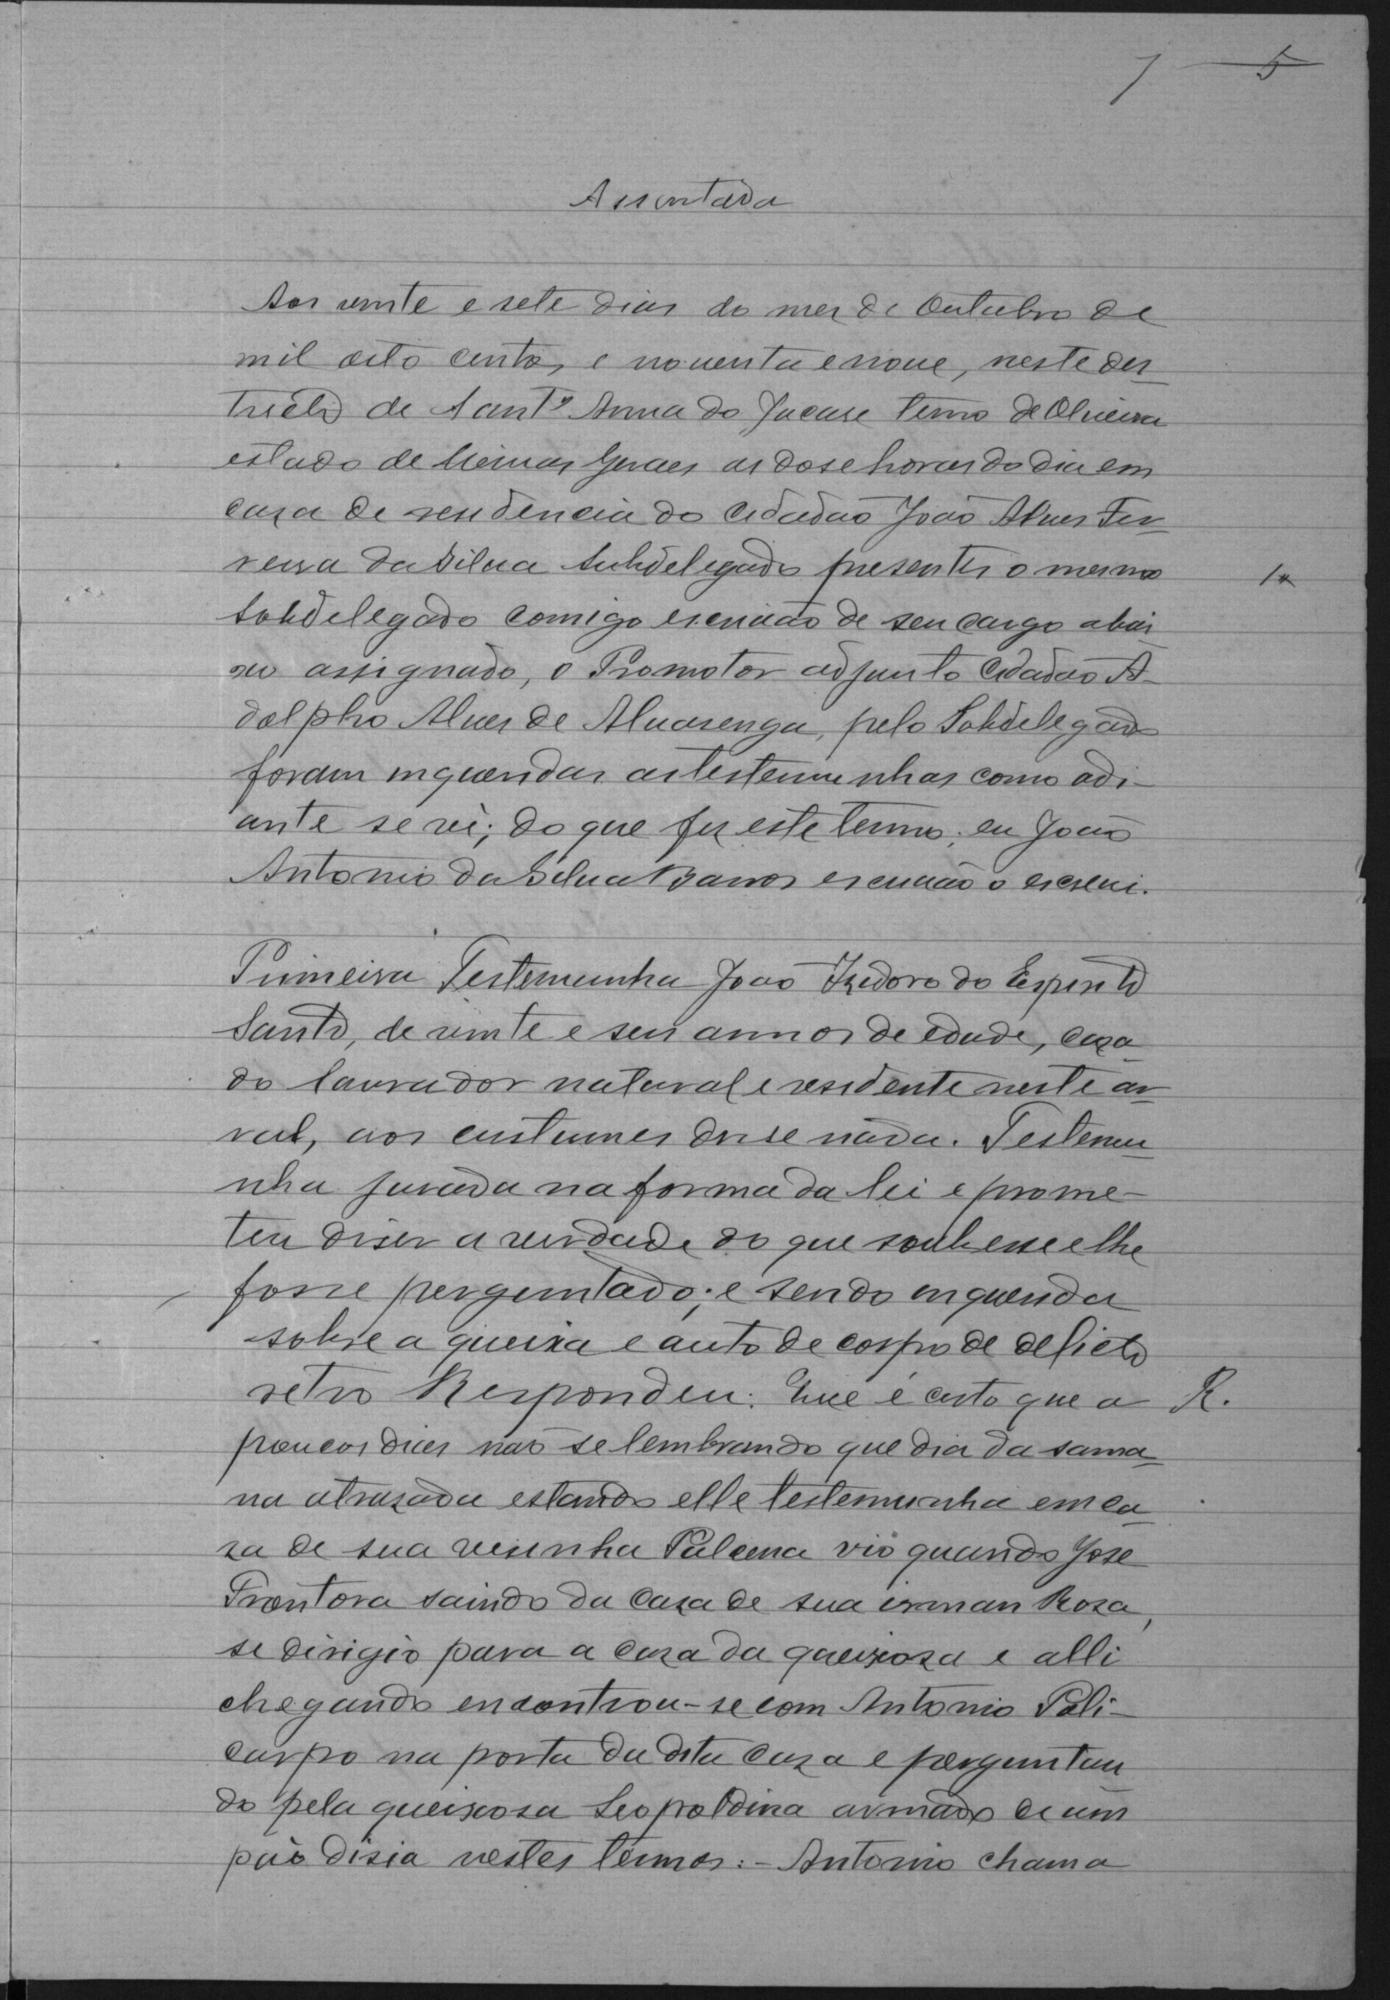 7 5
Assentada
Aos vinte e sete dias do mez de Outubro de
mil oito centos e noventa e nove, neste des-
tricto de Santa Anna do Jacare termo de Oliveira
estado de Minas Geraes as dose horas do dia em
caza de residencia do cidadão João Alves Fer-
reira da Silva Subdelegado presentes o mesmo
Subdelegado comigo escrivão de seu cargo abai-
xo assignado, o Promotor adjunto Cidadão A-
dolpho Alves de Alvarenga, pelo Subdelegado
foram inqueridas as testemunhas como adi-
ante se vê; do que fiz este termo; eu João
Antonio da Silva Barros escrivão o escrevi.
Primeira Testemunha João Izidoro do Espirito
Santo, de vinte e seis annos de edade, caza-
do lavrador natural e residente neste ar-
raal, aos custumes disse nada. Testemu-
nha jurada na forma da lei e prome-
teu diser a verdade do que soubesse e lhe
fosse perguntado; e sendo inquerida
sobre a queixa e auto de corpo de delicto
retro Respondeu: Que é certo que a R.
poucos dias não se lembrando que dia da sama-
na atrazada estando elle testemunha em ca-
za de sua vesinha Palcena vio quando Jose
Frontora saindo da caza de sua irman Roza,
se dirigio para a caza da queixoza e alli
chegando encontrou-se com Antonio Poli-
carpo na porta da dita caza e perguntan
do pela queixosa Leopoldina armado de um
páo disia nestes termos:- Antonio chama